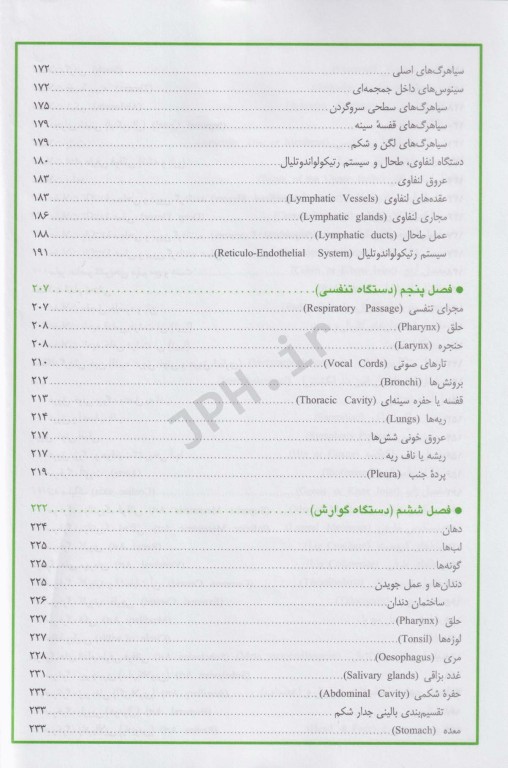 سیاهرگ‌های اصلی ۱۷۲
سینوس‌های داخل جمجمه‌ای ۱۷۲
سیاهرگ‌های سطحی سروگردن ۱۷۵
سیاهرگ‌های قفسهٔ سینه ۱۷۹
سیاهرگ‌های لگن و شکم ۱۷۹
دستگاه لنفاوی، طحال و سیستم رتیکولواندوتلیال ۱۸۰
عروق لنفاوی ۱۸۳
عقده‌های لنفاوی (Lymphatic Vessels) ۱۸۳
مجاری لنفاوی (Lymphatic glands) ۱۸۶
عمل طحال (Lymphatic ducts) ۱۸۸
سیستم رتیکولواندوتلیال (Reticulo-Endothelial System) ۱۹۱
● فصل پنجم (دستگاه تنفسی) ۲۰۷
مجرای تنفسی (Respiratory Passage) ۲۰۷
حلق (Pharynx) ۲۰۸
حنجره (Larynx) ۲۰۸
تارهای صوتی (Vocal Cords) ۲۱۰
برونش‌ها (Bronchi) ۲۱۲
قفسه یا حفره سینه‌ای (Thoracic Cavity) ۲۱۳
ریه‌ها (Lungs) ۲۱۴
عروق خونی شش‌ها ۲۱۷
ریشه یا ناف ریه ۲۱۷
پردهٔ جنب (Pleura) ۲۱۹
● فصل ششم (دستگاه گوارش) ۲۲۲
دهان ۲۲۴
لب‌ها ۲۲۵
گونه‌ها ۲۲۵
دندان‌ها و عمل جویدن ۲۲۵
ساختمان دندان ۲۲۶
حلق (Pharynx) ۲۲۷
لوزه‌ها (Tonsil) ۲۲۷
مری (Oesophagus) ۲۲۸
غدد بزاقی (Salivary glands) ۲۳۱
حفرهٔ شکمی (Abdominal Cavity) ۲۳۲
تقسیم‌بندی بالینی جدار شکم ۲۳۳
معده (Stomach) ۲۳۳
JPH.ir